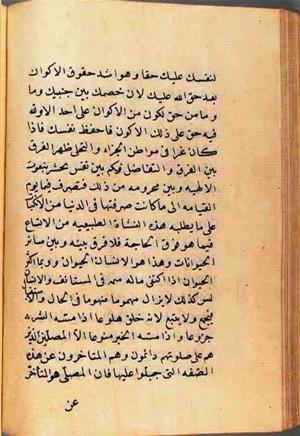 لنفسك عليك حقا وهو اشد حقوق الاكوان
بعد حق الله عليك لان خصمك بين جنبيك وما
وما من حق لكون من الاكوان على احد الا ولله
فيه حق على ذلك الاكون فاحفظ نفسك فاذا
كان غرا في مواطن الجزاء والتجلي ظهر الفرق
بين الفرق والتفاضل فكم بين نفس محشر
الالهية وبين محرومة من ذلك فتصرف فيها يوم
القيامه الى ما كانت صرفتها في الدنيا من
على ما يطلبه هذه النشاة الطبيعيه من الاتساع
فيما هو فوق الحاجة فلا فرق بينه وبين سائر
الحيوانات وهذا هو الانسان الحيوان
الحيوان اذا اكتفى ماله سهم في المستانف والانسان
ليس كذلك لا يزال مهموما منهوما في الحال
فيجمع ولا يشبع لانه خلق هلوعا اذا مسه الشر
جزوعا واذا مسه الخير منوعا الا المصلين الذين
هم على صلوتهم دائمون وهم المتاخرون عن هذه
الصفه التي جبلوا عليها فان المصلي هو المتاخر
عن